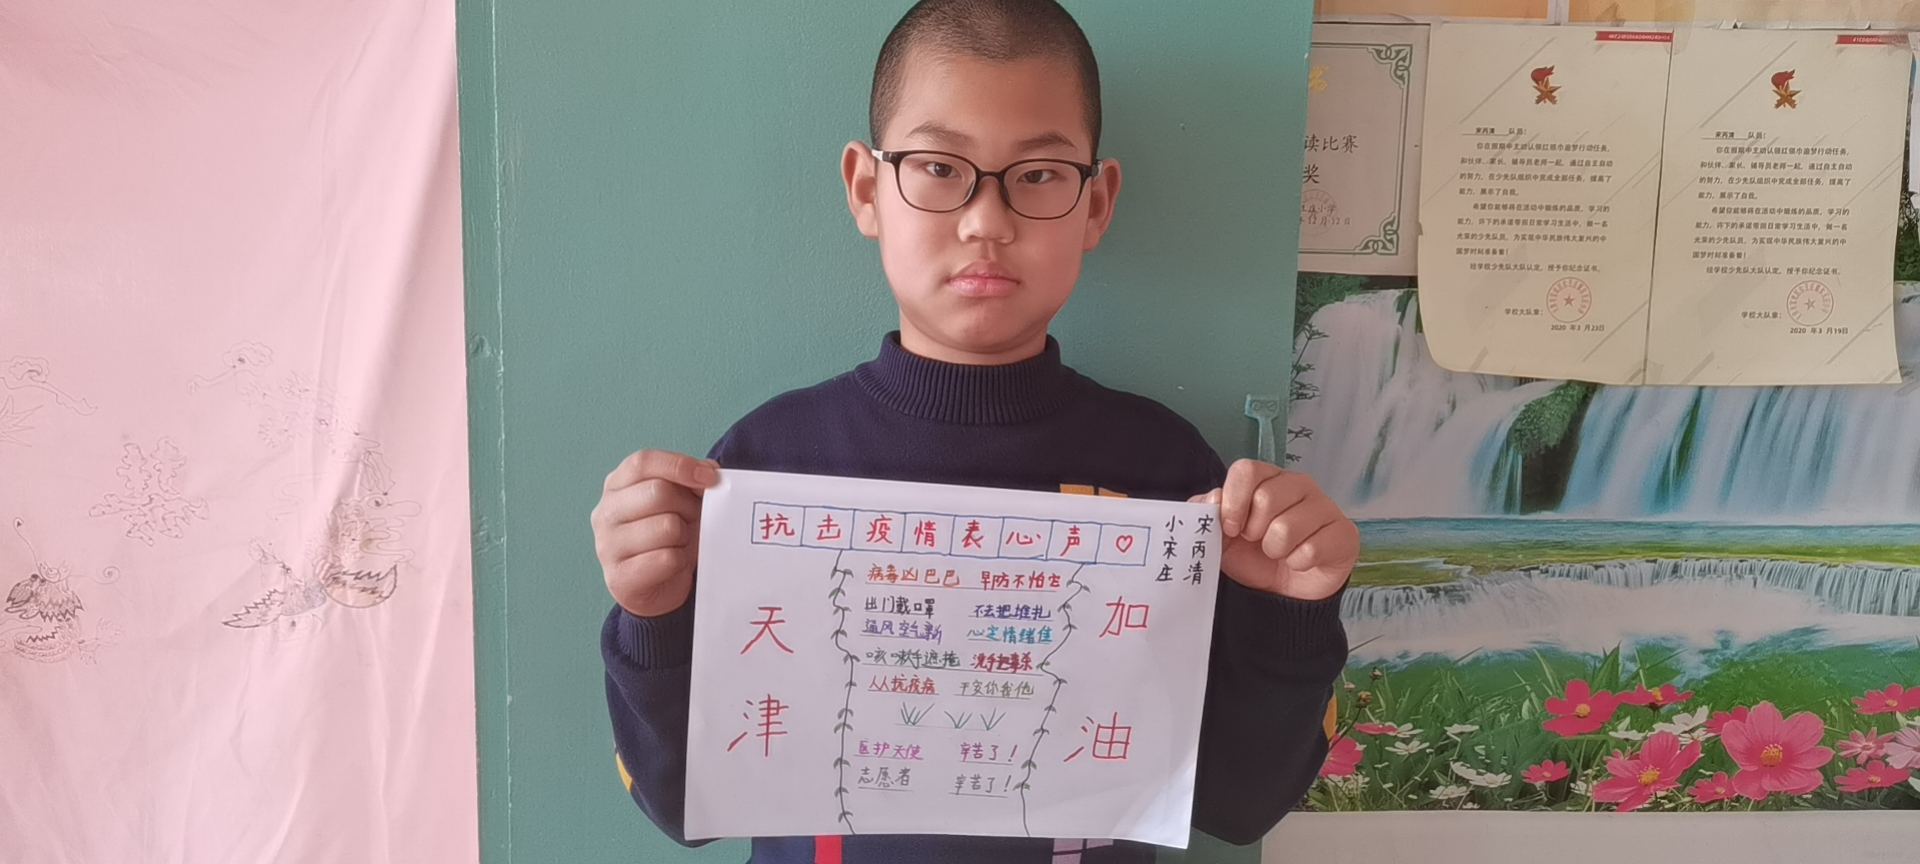 抗击疫情表心声
小宋庄
宋丙清
天津
加油
病毒凶巴巴 早防不怕它
出门戴口罩 不去把堆扎
通风空气新 心定情绪佳
咳嗽手遮掩 洗手把毒杀
人人抗疫病 平安你我他
医护天使 辛苦了!
志愿者 辛苦了!
读比赛
奖
小学
12月12日
宋丙清 队员:
你在假期中主动认领红领巾追梦行动任务,
和伙伴、家长、辅导员老师一起,通过自主自动
的努力,在少先队组织中完成全部任务,提高了
能力,展示了自我。
希望你能够将在活动中锻炼的品质、学习的
能力、许下的承诺带回日常学习生活中,做一名
光荣的少先队员,为实现中华民族伟大复兴的中
国梦时刻准备着!
经学校少先队大队认定,授予你纪念证书。
学校大队章:
2020 年3 月23日
宋丙清 队员:
你在假期中主动认领红领巾追梦行动任务,
和伙伴、家长、辅导员老师一起,通过自主自动
的努力,在少先队组织中完成全部任务,提高了
能力,展示了自我。
希望你能够将在活动中锻炼的品质、学习的
能力、许下的承诺带回日常学习生活中,做一名
光荣的少先队员,为实现中华民族伟大复兴的中
国梦时刻准备着!
经学校少先队大队认定,授予你纪念证书。
学校大队章:
2020 年3 月19日